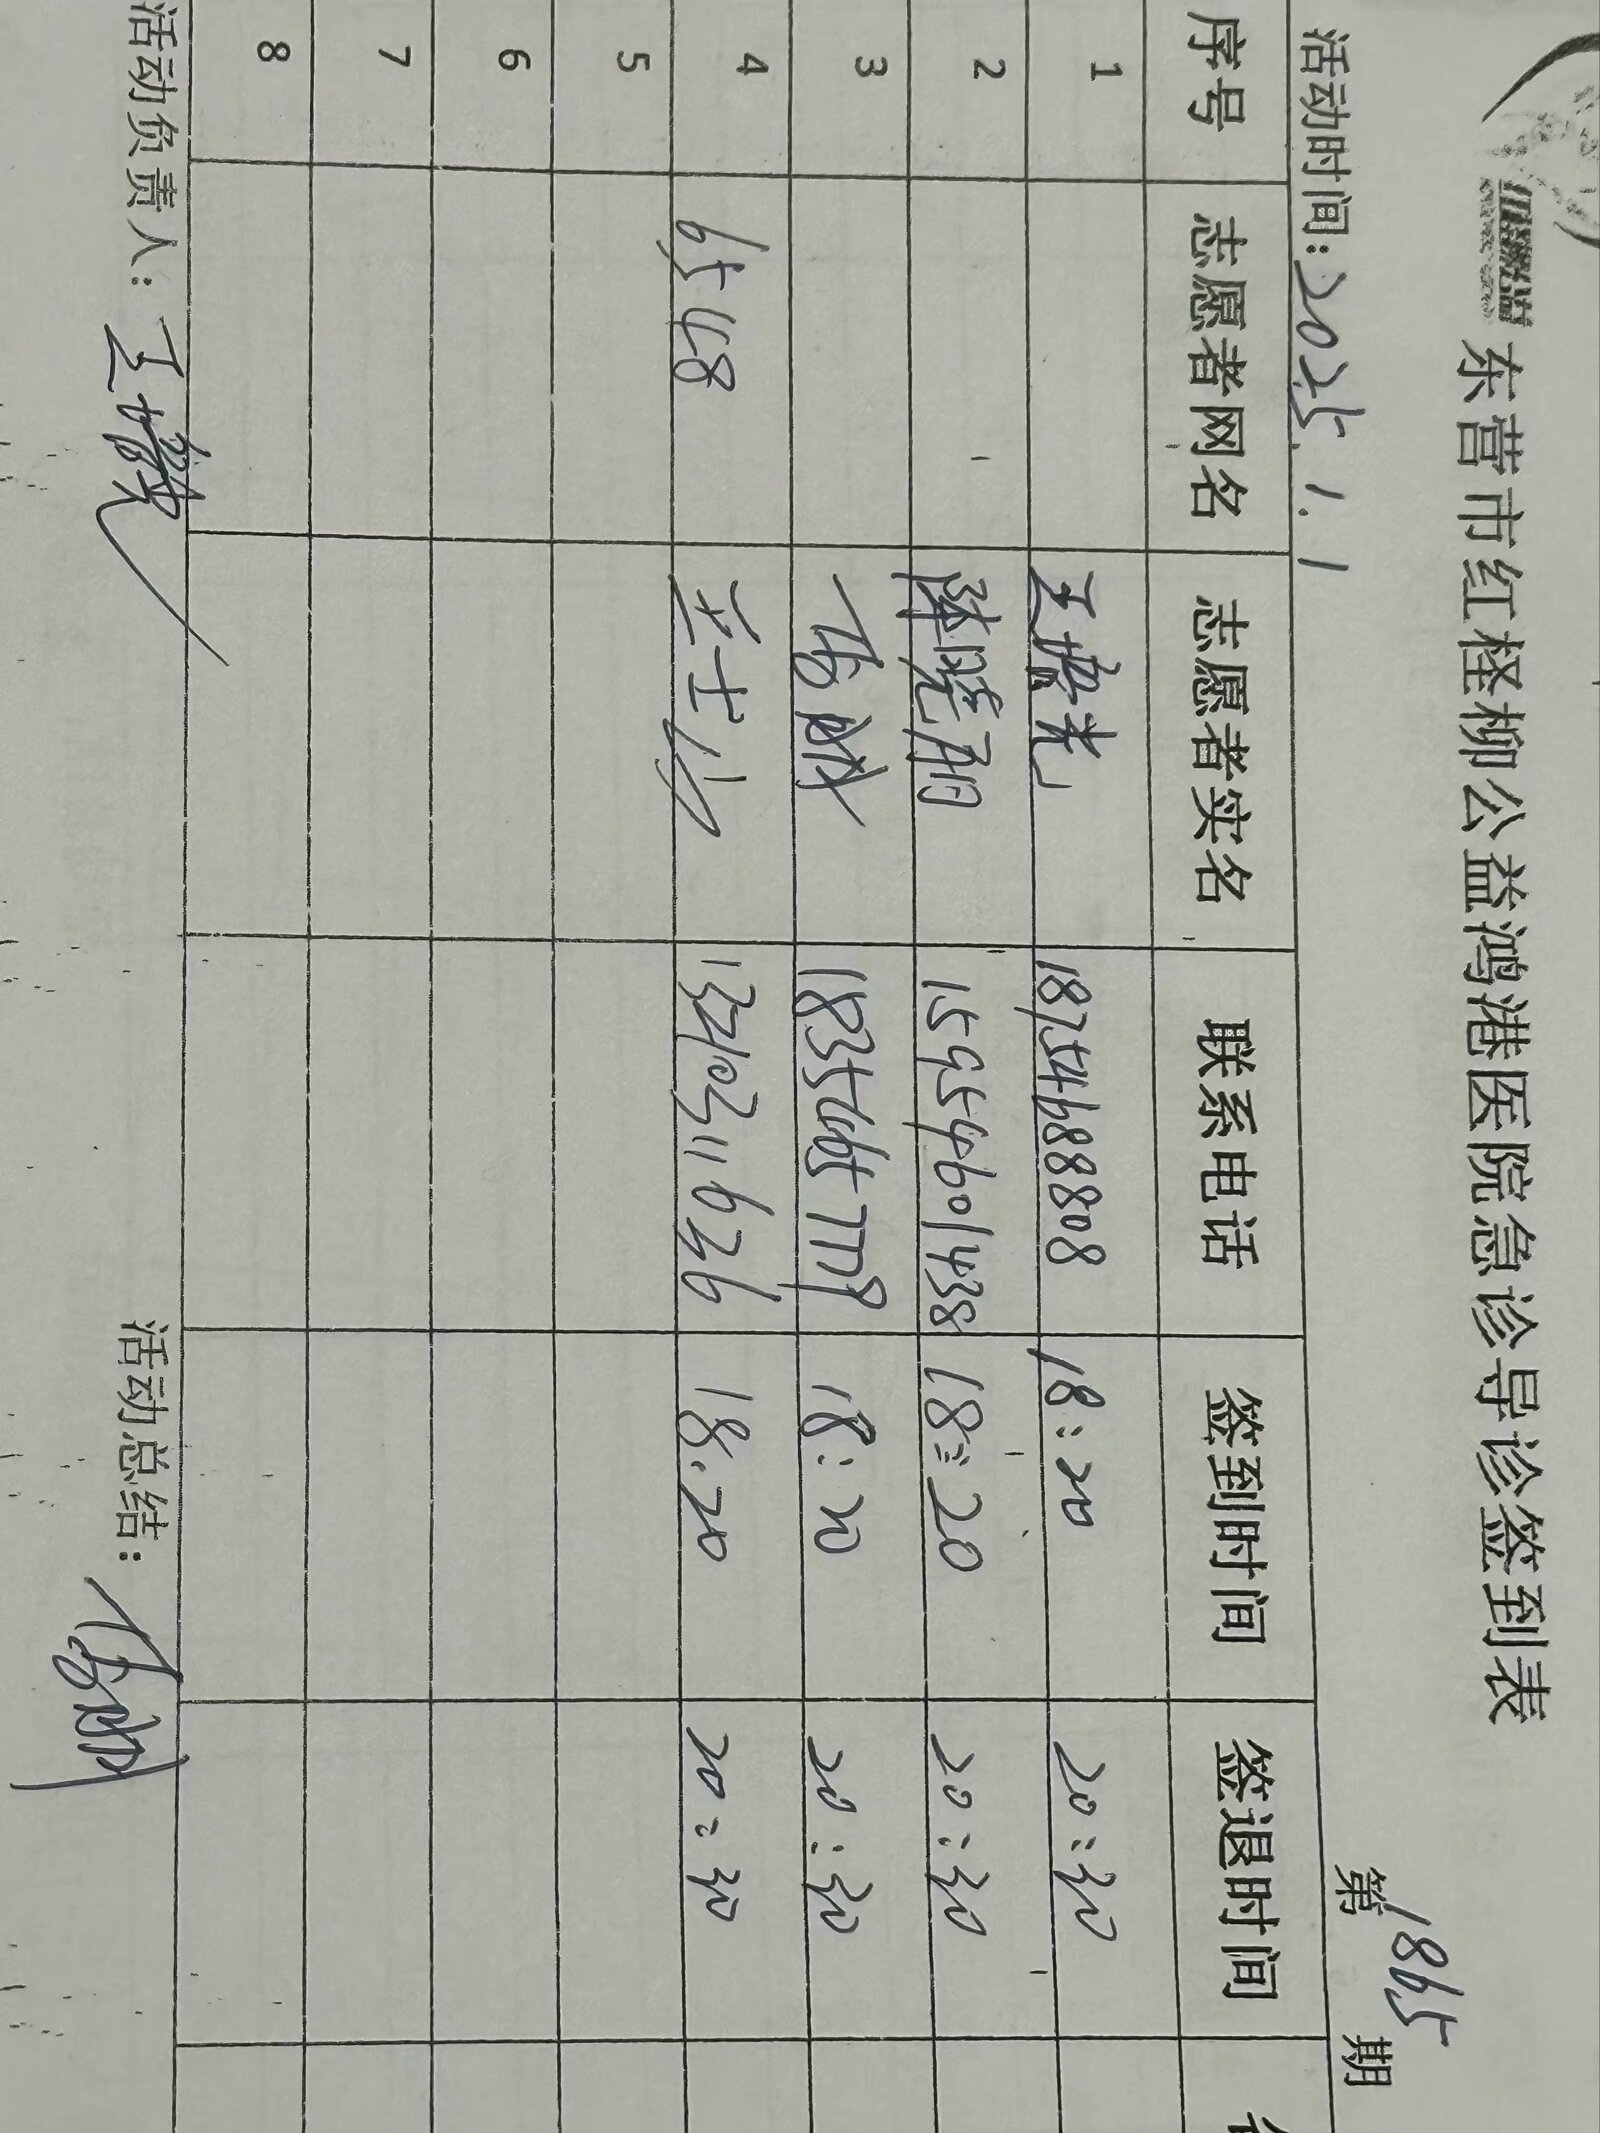 东营市红柽柳公益鸿港医院急诊导诊签到表
第1865期
活动时间：2025.1.1
序号 志愿者网名 志愿者实名 联系电话 签到时间 签退时间
1 18754688808 18:20 20:30
2 陈晓丽 15954601438 18:20 20:30
3 18354657779 18:20 20:30
4 6548 13210311626 18:20 20:30
5
6
7
8
活动负责人： 活动总结：